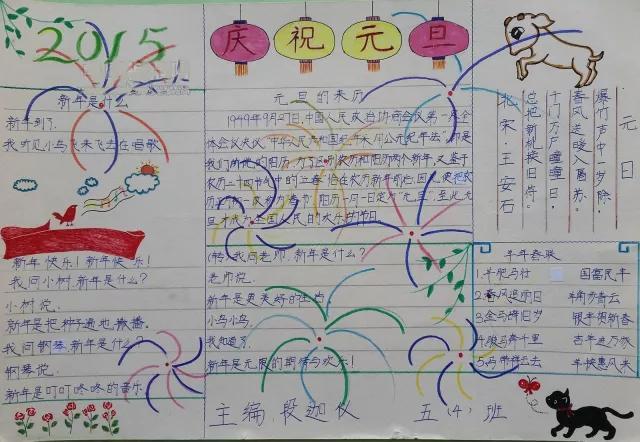 2015
新年是什么
新年到了.
我听见小鸟飞来飞去在唱歌
新年快乐！新年快乐！
我问小树新年是什么？
小树说.
新年是把种子遍地撒播.
我问钢琴.新年是什么？
钢琴说.
新年是叮叮咚咚的音乐.
庆祝元旦
元旦的来历
1949年9月27日,中国人民政治协商会议第一次全
体会议决议"中华人民共和国纪年采用公元纪年法",即是
我们所说的阳历,为了区别农历和阳历两个新年,又鉴于
农历二十四节气中的立春恰在农历新年前后,因此便把农
历正月初一改称为春节,阳历一月一日定为"元旦",至此元
旦才成为全国人民的欢乐节日.
(转)我问老师.新年是什么？
老师说.
新年是更美好的生活
小鸟小鸟.
我知道了.
新年是无限的期待与欢乐！
元日
爆竹声中一岁除.
春风送暖入屠苏.
千门万户曈曈日.
总把新桃换旧符.
北宋·王安石
羊年春联
1.羊肥马壮 国富民丰
2.春风追雨日 羊角步青云
3.金马辞旧岁 银羊报新春
4.骏马奔千里 吉羊进万家
5.马蹄辞云去 羊挟惠风来
主编.段迦仪 五(4)班